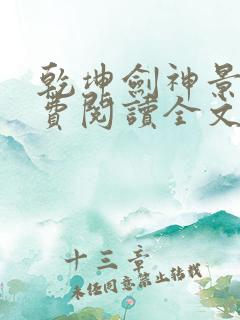 乾坤劍神景
費閱讀全文
十三章
未經同意禁止轉載